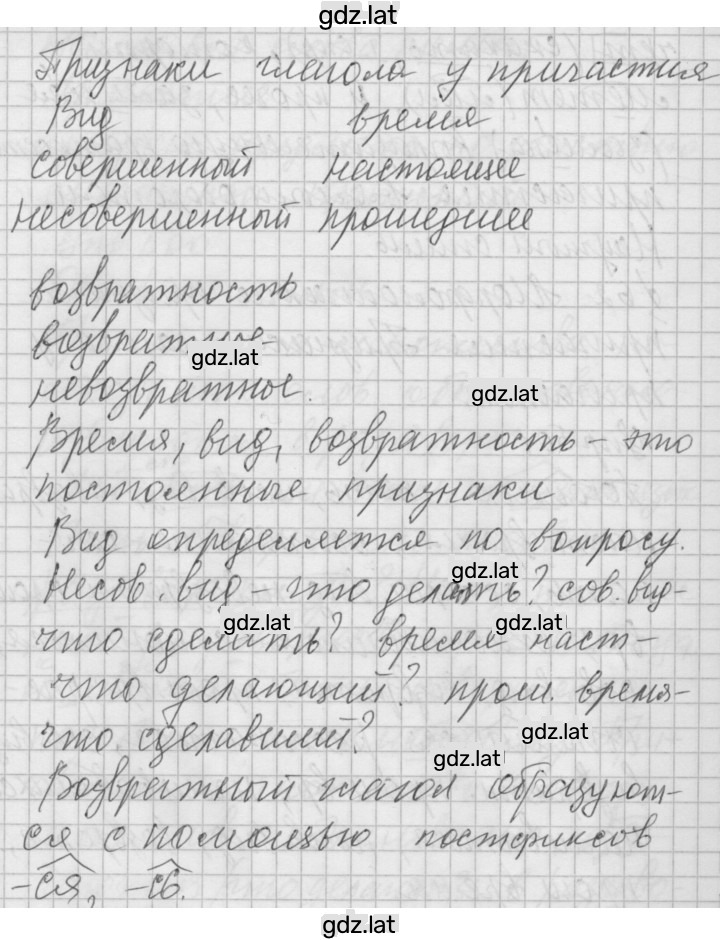 gdz.lat
Признаки глагола у причастия
Вид время
совершенный настоящее
несовершенный прошедшее
возвратность
возвратные-
gdz.lat
невозвратное.
gdz.lat
Время, вид, возвратность - это
постоянные признаки
Вид определяется по вопросу.
gdz.lat
Несов. вид - что делать? сов. вид-
gdz.lat gdz.lat
что сделать? время наст-
что делающий? прош. время-
gdz.lat
что сделавший?
gdz.lat
Возвратный глагол образуют-
ся с помощью постфиксов
-ся, -сь.
gdz.lat